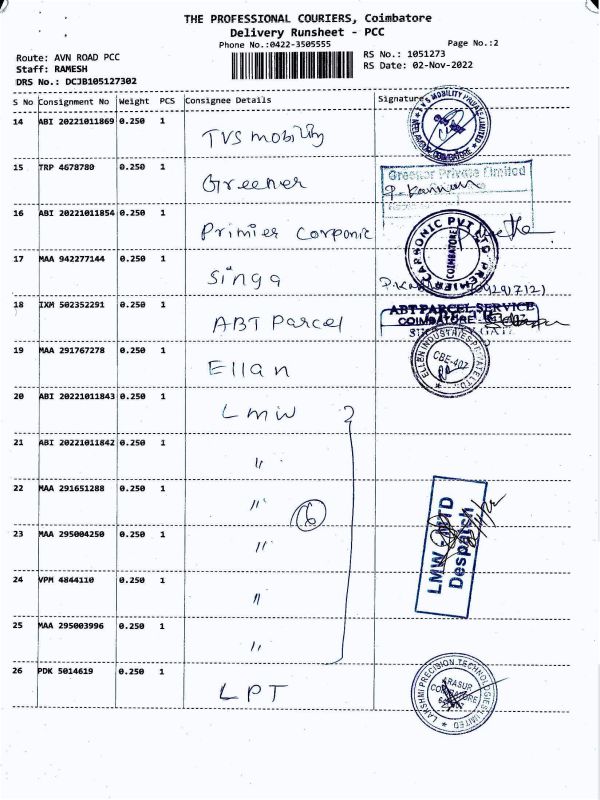 THE PROFESSIONAL COURIERS, Coimbatore
Delivery Runsheet - PCC
Phone No.:0422-3505555
Page No.:2
Route: AVN ROAD PCC
RS No.: 1051273
Staff: RAMESH
RS Date: 02-Nov-2022
DRS No.: DCJB105127302
S No Consignment No Weight PCS Consignee Details Signature
14 ABI 20221011869 0.250 1 TVS mobility
TVS MOBILITY PRIVATE LIMITED
COIMBATORE
15 TRP 4678780 0.250 1 Greener
Greenor Private Limited
P. Kannan
16 ABI 20221011854 0.250 1 Primier Corponic
PREMIER CARSONIC PVT LTD
COIMBATORE
17 MAA 942277144 0.250 1 Singa
18 IXM 502352291 0.250 1 ABT Parcel
ABT PARCEL SERVICE
COIMBATORE
19 MAA 291767278 0.250 1 Ellan
ELLEN INDUSTRIES PRIVATE LTD
CBE-407
20 ABI 20221011843 0.250 1 LMW
21 ABI 20221011842 0.250 1 "
22 MAA 291651288 0.250 1 "
6
23 MAA 295004250 0.250 1 "
LMW - MTD
Despatch
24 VPM 4844110 0.250 1 "
25 MAA 295003996 0.250 1 "
26 PDK 5014619 0.250 1 LPT
LAKSHMI PRECISION TECHNOLOGIES LIMITED
ARASUR
COIMBATORE